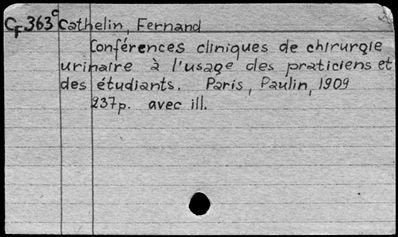 CF 363c Cathelin, Fernand
Conférences cliniques de chirurgie
urinaire à l'usage des praticiens et
des étudiants. Paris, Paulin, 1909
237p. avec ill.